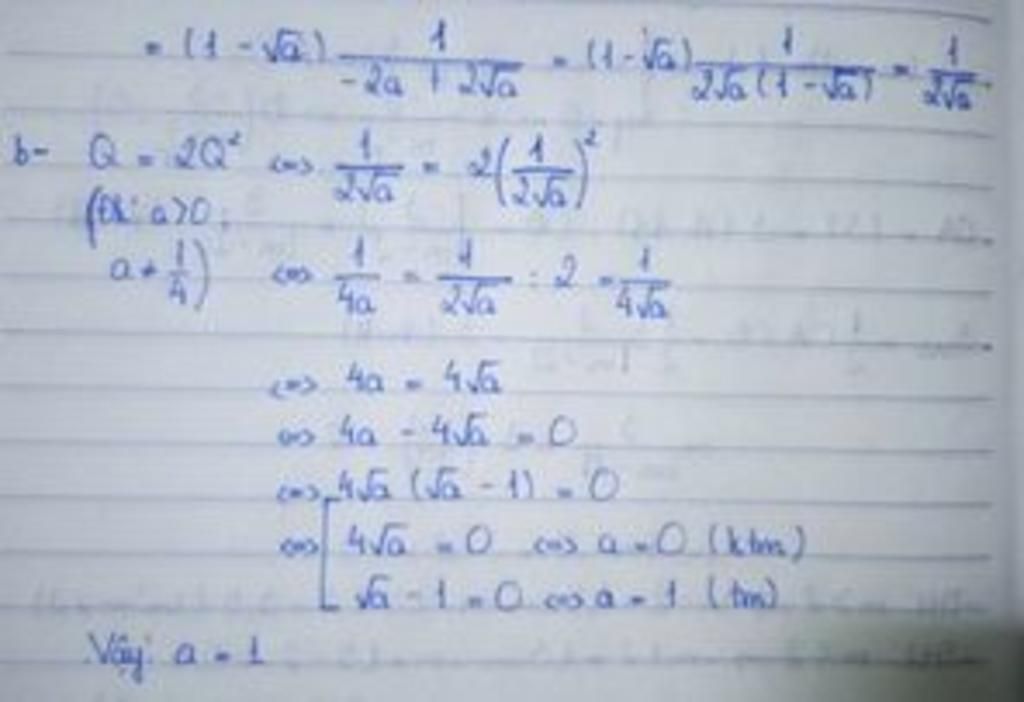 = (1 - √a) 1/(-2a + 2√a) = (1-√a) 1/(2√a (1-√a)) = 1/(2√a).
b- Q = 2Q² <=> 1/(2√a) = 2(1/(2√a))²
(Đk: a>0;
a ≠ 1/4) <=> 1/(4a) = 1/(2√a) : 2 = 1/(4√a)
<=> 4a = 4√a
<=> 4a - 4√a = 0
<=> 4√a (√a - 1) = 0
<=> [ 4√a = 0 <=> a = 0 (ktm)
√a - 1 = 0 <=> a = 1 (tm)
Vậy: a = 1